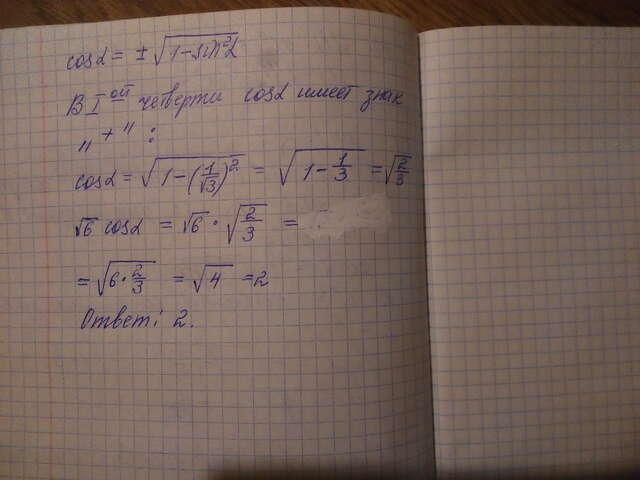 cosα = ±√(1-sin²α)
В I ой четверти cosα имеет знак
„ + " :
cosα = √(1-(1/√3)²) = √(1-1/3) = √(2/3)
√6 cosα = √6 · √(2/3) =
= √(6·2/3) = √4 = 2
Ответ: 2.